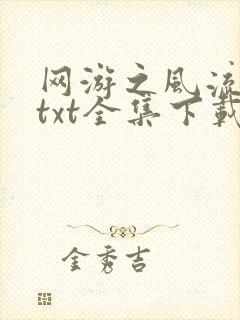 网游之风流
txt全集下载
金秀吉